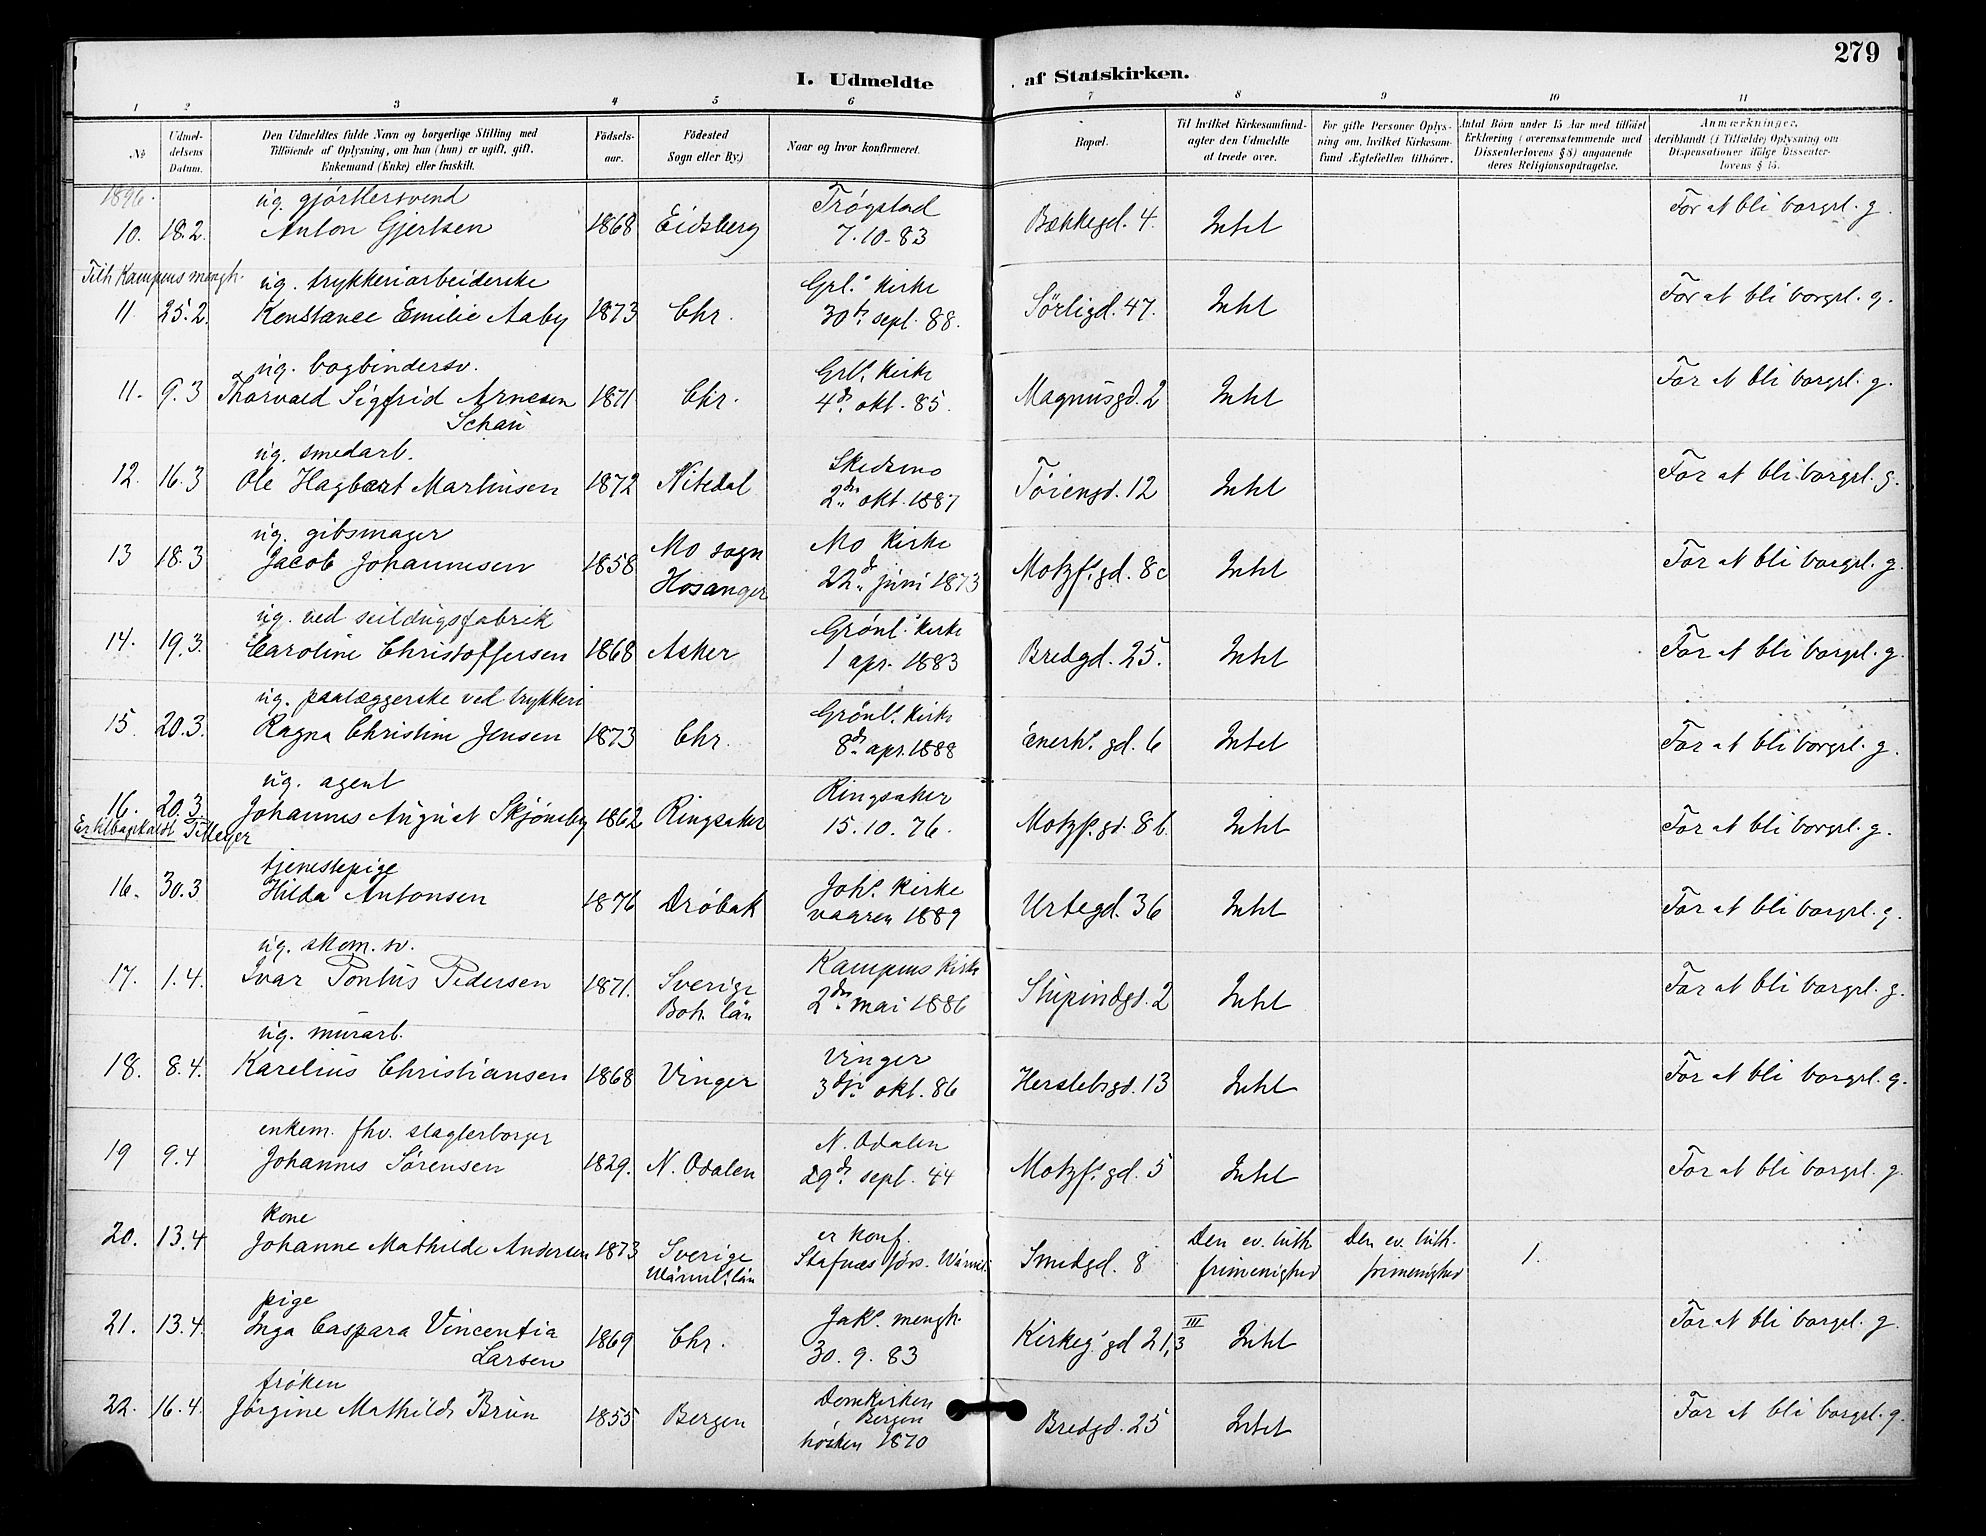 279
I. Udmeldte af Statskirken.
1 2 3 4 5 6 7 8 9 10 11
No
Udmeldelsens Datum.
Den Udmeldtes fulde Navn og borgerlige Stilling med
Tilføiende af Oplysning, om han (hun) er ugift, gift,
Enkemand (Enke) eller fraskilt.
Fødselsaar.
Fødested
Sogn eller By.)
Naar og hvor konfirmeret.
Bopæl.
Til hvilket Kirkesamfund
agter den Udmeldte
at træde over.
For gifte Personer Oplysning
om, hvilket Kirkesamfund
Ægtefællen tilhører.
Antal Børn under 15 Aar med tilført
Erklæring (overensstemmende med
Dissenterlovens § 8) angaaende
deres Religionsopdragelse.
Anmærkninger,
deriblandt (i Tilfælde) Oplysning om
Dispensationer ifølge Dissenterlovens § 15.
1896.
ug. gjørtlersvend Trøgstad For at bli borgrl. g.
10. 18.2. Anton Gjertsen 1868 Eidsberg 7.10.83 Bækkegd. 4. Intet
Tilh Kampens mengh.
ug. trykkeriarbeiderske Grl.s kirke For at bli borgrl. g.
11 25.2. Konstance Emilie Aaby 1873 Chr. 30te sept. 88. Sørligd. 47. Intet
ug. bogbindersv. Grl.s kirke For at bli borgrl. g.
11. 9.3 Thorvald Sigfrid Arnesen 1871 Chr. 4de okt. 85. Magnusgd. 2 Intet
Schau
ug. smedarb. Skedsmo For at bli borgrl. g.
12. 16.3 Ole Hagbart Martinsen 1872 Nitedal 2den okt. 1887 Tøiengd. 12 Intet
ug. gibsmager Mo sogn Mo kirke For at bli borgrl. g.
13 18.3 Jacob Johannesen 1858 Hosanger 22de juni 1873 Motzf.s gd. 8c Intet
ug. ved seildugsfabrik Grønl.s kirke
14. 19.3. Caroline Christoffersen 1868 Asker 1 apr. 1883 Bredgd. 25. Intet For at bli borgrl. g.
ug. paalæggerske ved trykkeri Grønl.s kirke
15. 20.3. Ragna Christine Jensen 1873 Chr. 8de apr. 1888 Enerh.s gd. 6 Intet For at bli borgrl. g.
ug. agent Ringsaker
16. 20.3 Johannes August Skjønsby 1862 Ringsaker 15.10.76. Motzf.s gd. 8b. Intet For at bli borgrl. g.
Er tilbagekaldt
tjenestepige Joh.s kirke
16. 30.3 Hilda Antonsen 1876 Drøbak vaaren 1889 Urtegd. 36 Intet For at bli borgrl. g.
ug. skom. sv. Kampens kirke
17. 1.4. Ivar Pontus Pedersen 1871. Sverige Boh. län 2den mai 1886 Stupindgd. 2 Intet For at bli borgrl. g.
ug. murarb. Vinger
18. 8.4. Karelius Christiansen 1868 Vinger 3dje okt. 86 Herslebsgd. 13 Intet For at bli borgrl. g.
enkem. fhv. slagterborger N. Odalen
19 9.4 Johannes Sørensen 1829. N. Odalen 29de sept. 44 Motzf.s gd. 5 Intet For at bli borgrl. g.
kone er konf. Den ev. luth. Den ev. luth.
20. 13.4 Johanne Mathilde Andersen 1873 Sverige Stafnäs förs. Wärml. Smedgd. 8 frimenighed frimenighed 1.
Wärml.s län
pige Jak.s mengh. III
21. 13.4. Inga Caspara Vincentia 1869 Chr. 30.9.83 Kirkeg.s gd 21,3 Intet For at bli borgrl. g.
Larsen
frøken Domkirken
22. 16.4. Jørgine Mathilde Brun 1855 Bergen Bergen Bredgd. 25 Intet For at bli borgrl. g.
høsten 1870